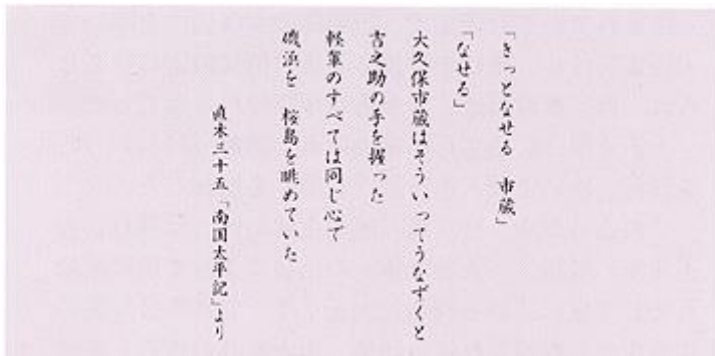 「きっとなせる 市蔵」
「なせる」
大久保市蔵はそういってうなずくと
吉之助の手を握った
軽輩のすべては同じ心で
磯浜を 桜島を眺めていた
直木三十五「南国太平記」より